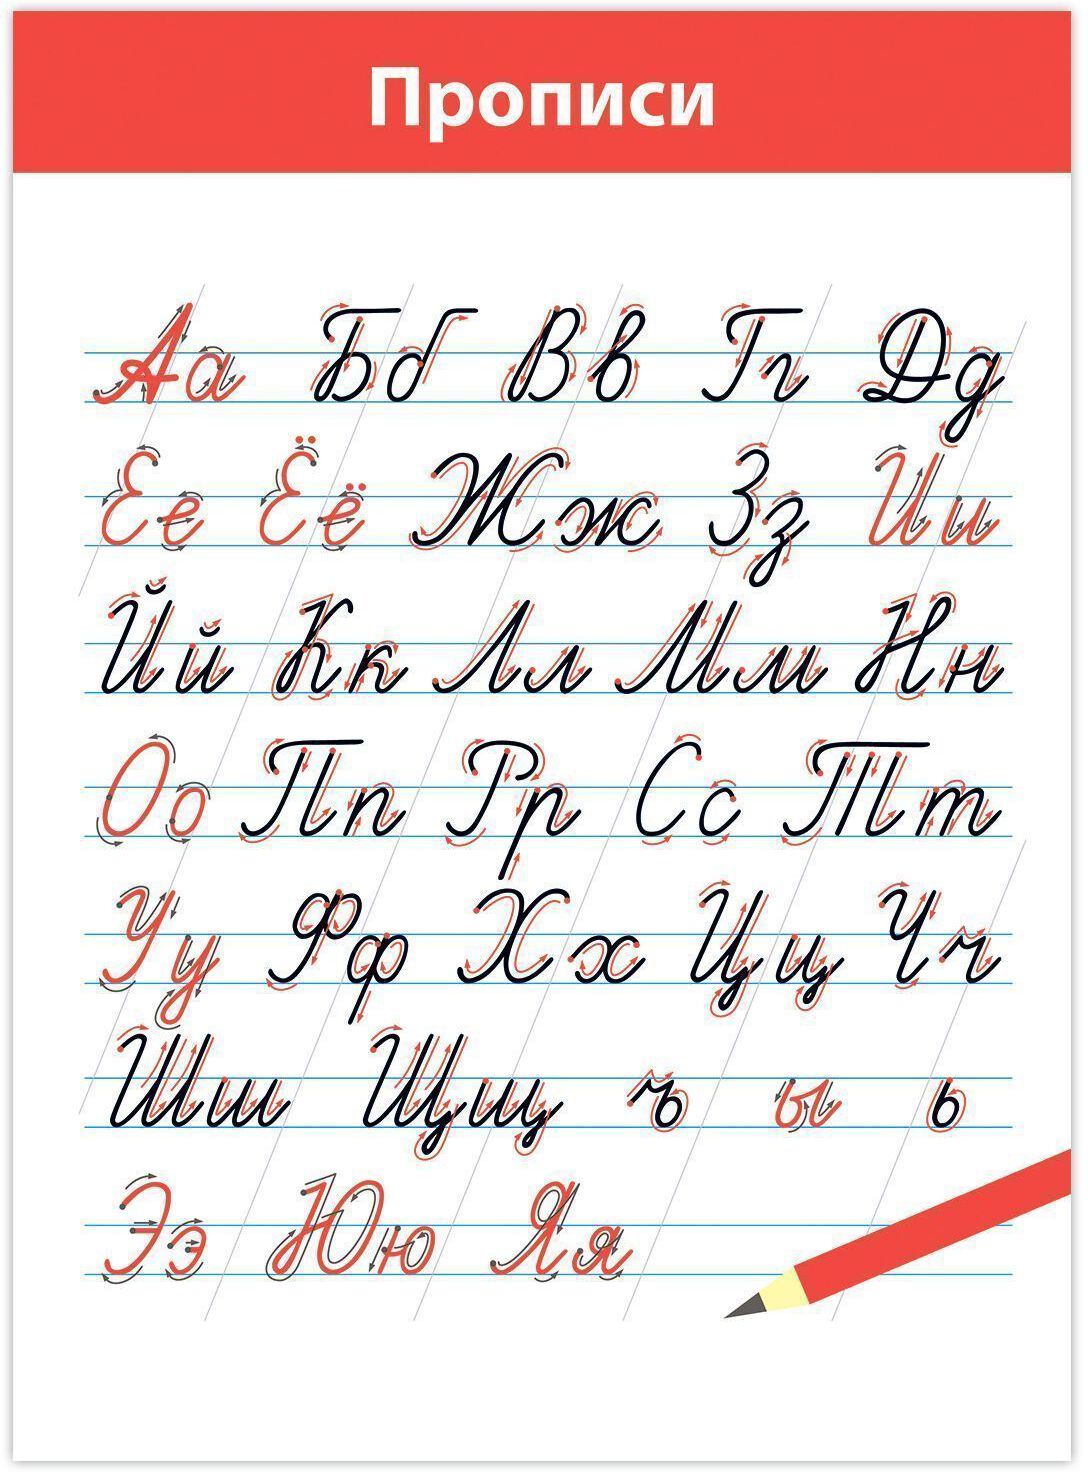 Прописи
Аа Бб Вв Гг Дд
Ее Ёё Жж Зз Ии
Йй Кк Лл Мм Нн
Оо Пп Рр Сс Тт
Уу Фф Хх Цц Чч
Шш Щщ ъ ы ь
Ээ Юю Яя